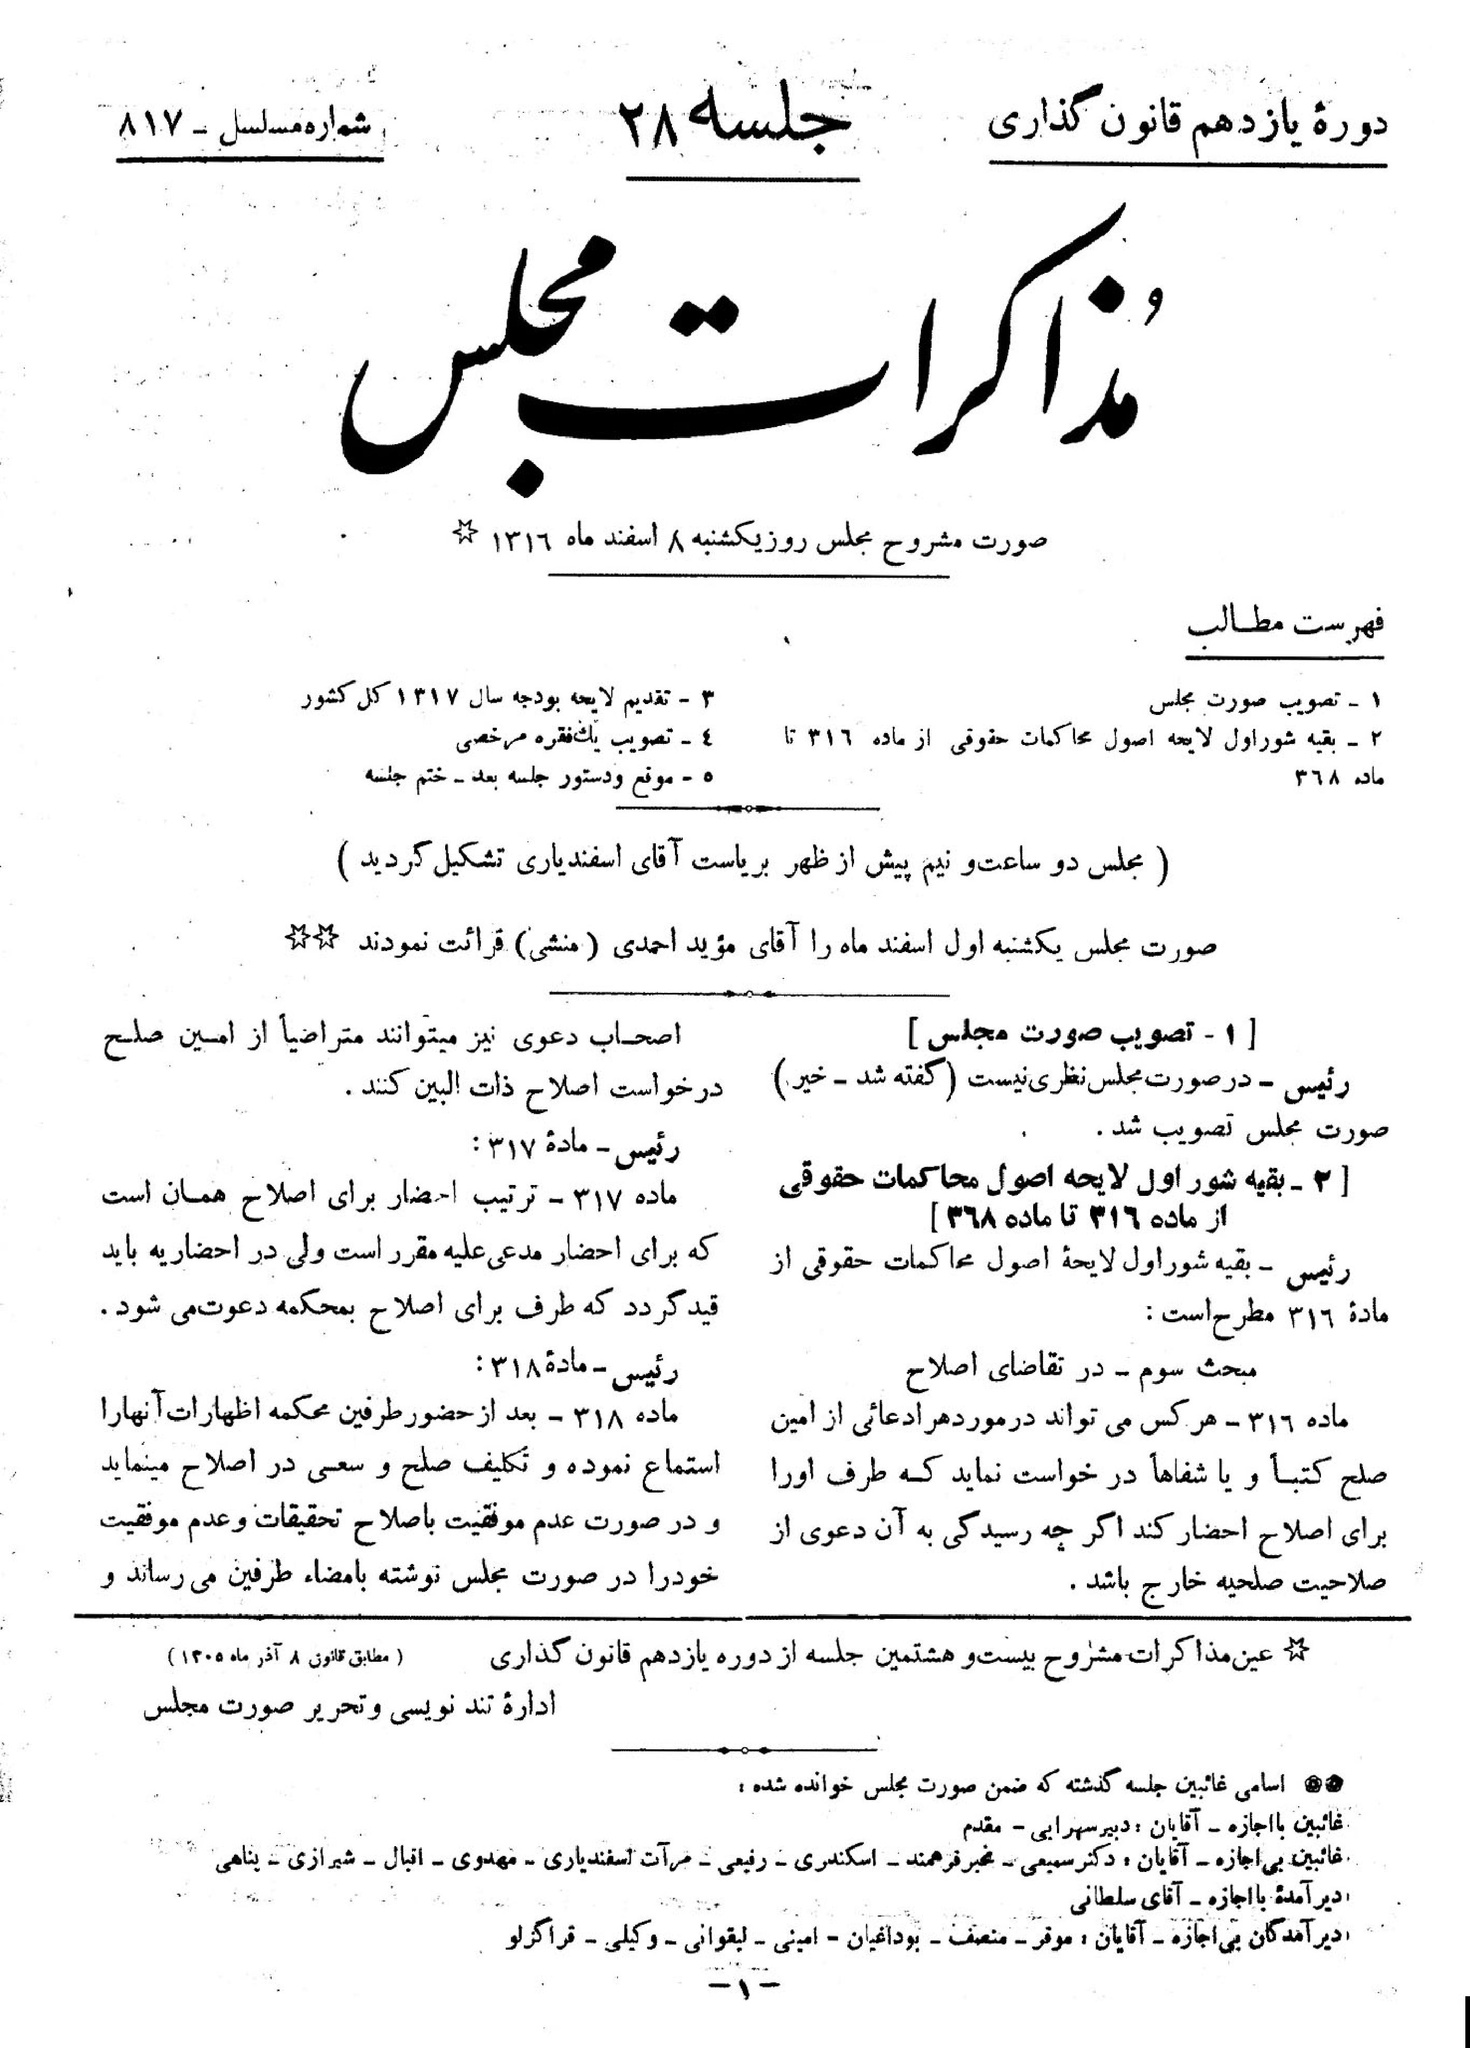 دورهٔ یازدهم قانون گذاری
جلسه ۲۸
شماره مسلسل ـ ۸۱۷
مذاکرات مجلس
صورت مشروح مجلس روز یکشنبه ۸ اسفند ماه ۱۳۱٦ ☆
فهرست مطالب
۱ ـ تصویب صورت مجلس
۲ ـ بقیه شور اول لایحه اصول محاکمات حقوقی از ماده ۳۱٦ تا
ماده ۳٦۸
۳ - تقدیم لایحه بودجه سال ۱۳۱۷ کل کشور
٤ ـ تصویب یك فقره مرخصی
۵ - موقع و دستور جلسه بعد ـ ختم جلسه
( مجلس دو ساعت و نیم پیش از ظهر بریاست آقای اسفندیاری تشکیل گردید )
صورت مجلس یکشنبه اول اسفند ماه را آقای مؤید احمدی (منشی) قرائت نمودند ☆☆
[ ۱ - تصویب صورت مجلس ]
رئیس ـ در صورت مجلس نظری نیست (گفته شد ـ خیر)
صورت مجلس تصویب شد .
[ ۲ ـ بقیه شور اول لایحه اصول محاکمات حقوقی
از ماده ۳۱٦ تا ماده ۳٦۸ ]
رئیس ـ بقیه شور اول لایحهٔ اصول محاکمات حقوقی از
مادهٔ ۳۱٦ مطرح است :
مبحث سوم ـ در تقاضای اصلاح
ماده ۳۱٦ ـ هر کس می تواند در مورد هر ادعائی از امین
صلح کتباً و یا شفاهاً در خواست نماید که طرف اورا
برای اصلاح احضار کند اگر چه رسیدگی به آن دعوی از
صلاحیت صلحیه خارج باشد .
اصحاب دعوی نیز میتوانند متراضیاً از امین صلح
درخواست اصلاح ذات البین کنند .
رئیس ـ مادهٔ ۳۱۷ :
ماده ۳۱۷ ـ ترتیب احضار برای اصلاح همان است
که برای احضار مدعی علیه مقرر است ولی در احضاریه باید
قید گردد که طرف برای اصلاح بمحکمه دعوت می شود .
رئیس ـ مادهٔ ۳۱۸ :
ماده ۳۱۸ ـ بعد از حضور طرفین محکمه اظهارات آنهارا
استماع نموده و تکلیف صلح و سعی در اصلاح مینماید
و در صورت عدم موفقیت باصلاح تحقیقات و عدم موفقیت
خودرا در صورت مجلس نوشته بامضاء طرفین می رساند و
☆ عین مذاکرات مشروح بیست و هشتمین جلسه از دوره یازدهم قانون گذاری
( مطابق قانون ۸ آذر ماه ۱۳۰۵ )
ادارهٔ تند نویسی و تحریر صورت مجلس
اسامی غائبین جلسه گذشته که ضمن صورت مجلس خوانده شده :
غائبین با اجازه ـ آقایان : دبیرسهرابی ـ مقدم
غائبین بی اجازه ـ آقایان : دکتر سمیعی ـ مخبر فرهمند ـ اسکندری ـ رفیعی ـ مرآت اسفندیاری ـ مهدوی ـ اقبال ـ شیرازی ـ پناهی
دیر آمدهٔ با اجازه ـ آقای سلطانی
دیر آمدگان بی اجازه ـ آقایان : موقر ـ منصف ـ بوداغیان ـ امینی ـ لیقوانی ـ وکیلی ـ قراگزلو
ـ ۱ ـ